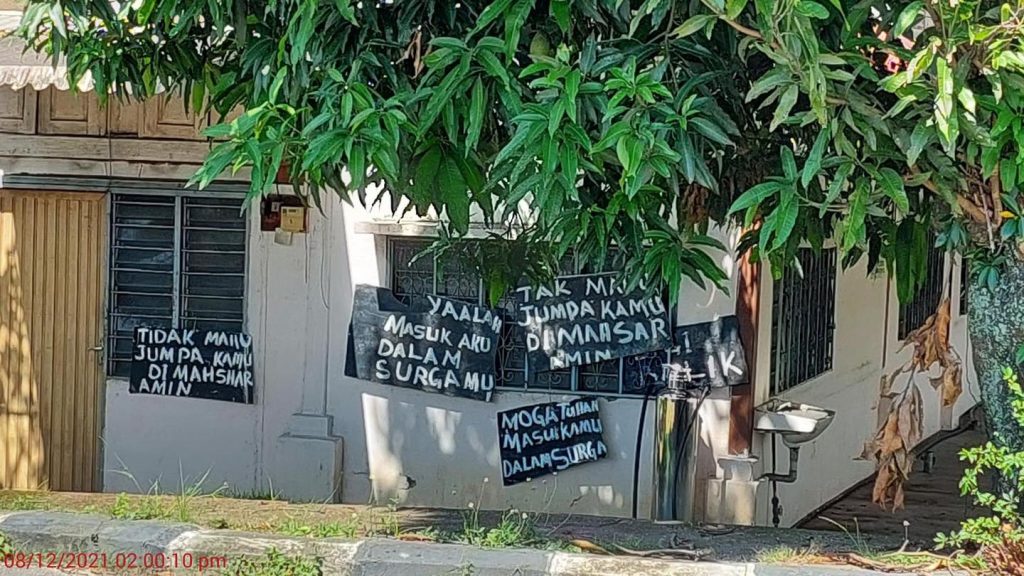 TIDAK MAHU
JUMPA KAMU
DI MAHSHAR
AMIN
YAALAH
MASUK AKU
DALAM
SURGAMU
TAK MAHU
JUMPA KAMU
DI MAHSAR
AMIN
IK
MOGA TUHAN
MASUK KAMU
DALAM SURGA
08/12/2021 02:00:10 pm